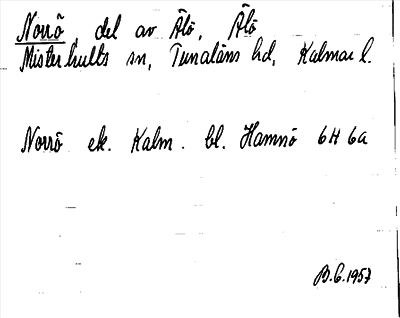 Norrö, del av Älö, Älö
Misterhults sn, Tunaläns hd, Kalmar l.
Norrö ek. Kalm. bl. Hamnö 6H 6a
B.G.1957